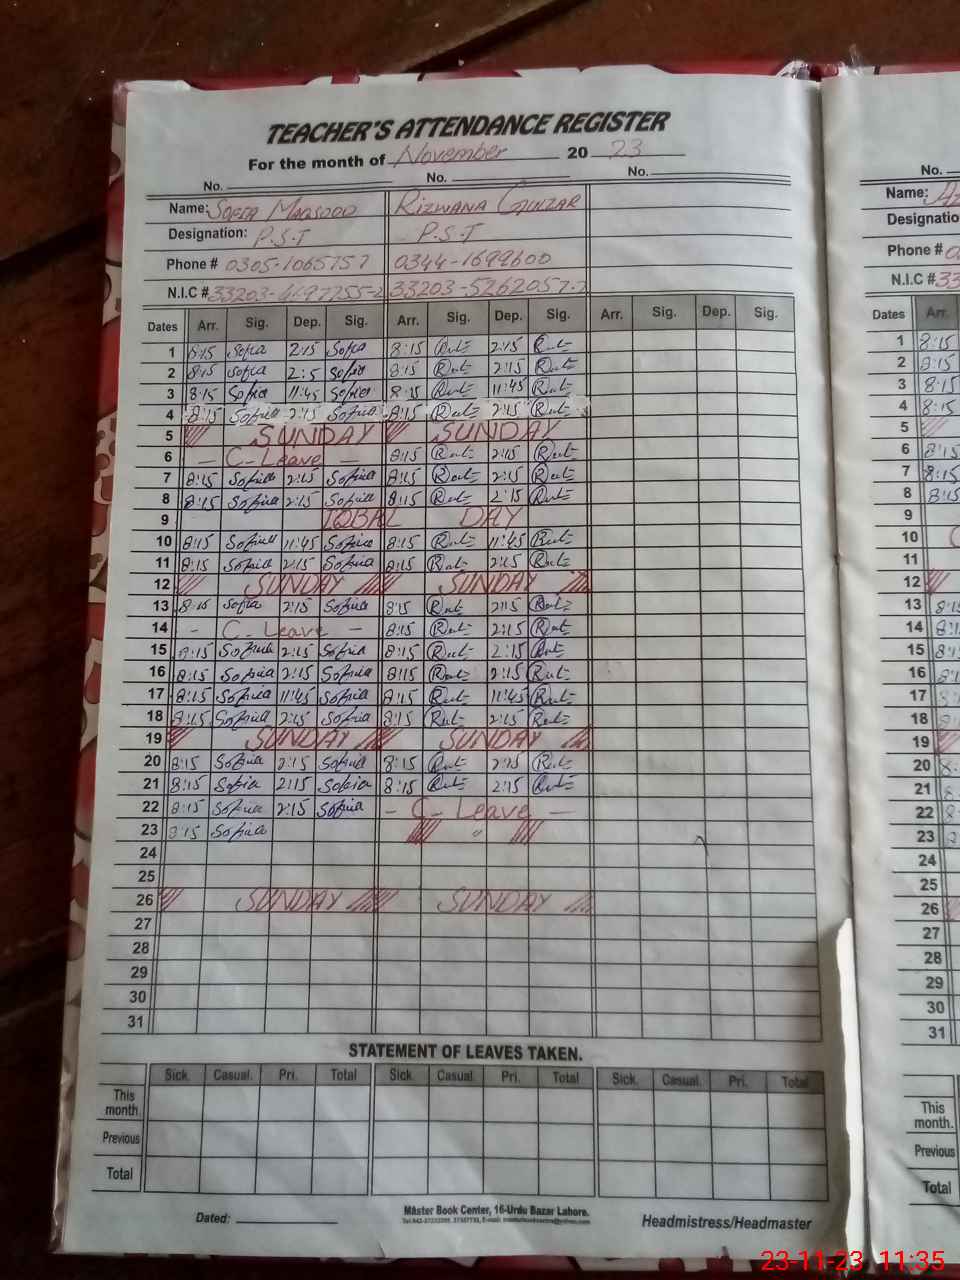 TEACHER'S ATTENDANCE REGISTER
For the month of November 20 23
No. No. No.
Name: Sofia Maqsood Rizwana Gulzar
Designation: P.S.T P.S.T
Phone # 0305-1065757 0344-1699600
N.I.C # 33203- 33203-5262057-
Dates Arr. Sig. Dep. Sig. Arr. Sig. Dep. Sig. Arr. Sig. Dep. Sig.
1 8:15 Sofia 2:15 Sofia 8:15 2:15
2 8:15 Sofia 2:5 Sofia 8:15 2:15
3 8:15 Sofia 11:45 Sofia 8:15 11:45
4 8:15 Sofia 2:15 Sofia 8:15 2:15
5 SUNDAY SUNDAY
6 - C-Leave - 8:15 2:15
7 8:15 Sofia 2:15 Sofia 8:15 2:15
8 8:15 Sofia 2:15 Sofia 8:15 2:15
9 IQBAL DAY
10 8:15 Sofia 11:45 Sofia 8:15 11:45
11 8:15 Sofia 2:15 Sofia 8:15 2:15
12 SUNDAY SUNDAY
13 8:15 Sofia 2:15 Sofia 8:15 2:15
14 - C-Leave - 8:15 2:15
15 8:15 Sofia 2:15 Sofia 8:15 2:15
16 8:15 Sofia 2:15 Sofia 8:15 2:15
17 8:15 Sofia 11:45 Sofia 8:15 11:45
18 8:15 Sofia 2:15 Sofia 8:15 2:15
19 SUNDAY SUNDAY
20 8:15 Sofia 2:15 Sofia 8:15 2:15
21 8:15 Sofia 2:15 Sofia 8:15 2:15
22 8:15 Sofia 2:15 Sofia - C-Leave -
23 8:15 Sofia "
24
25
26 SUNDAY SUNDAY
27
28
29
30
31
STATEMENT OF LEAVES TAKEN.
Sick. Casual. Pri. Total Sick. Casual Pri. Total Sick. Casual. Pri. Total
This month.
Previous
Total
Master Book Center, 16-Urdu Bazar Lahore.
Dated: Headmistress/Headmaster
No.
Name:
Designatio
Phone #
N.I.C # 33
Dates Arr.
1 8:15
2 8:15
3 8:15
4 8:15
5
6 8:15
7 8:15
8 8:15
9
10
11
12
13
14
15
16
17
18
19
20
21
22
23
24
25
26
27
28
29
30
31
This month.
Previous
Total
23-11-23 11:35